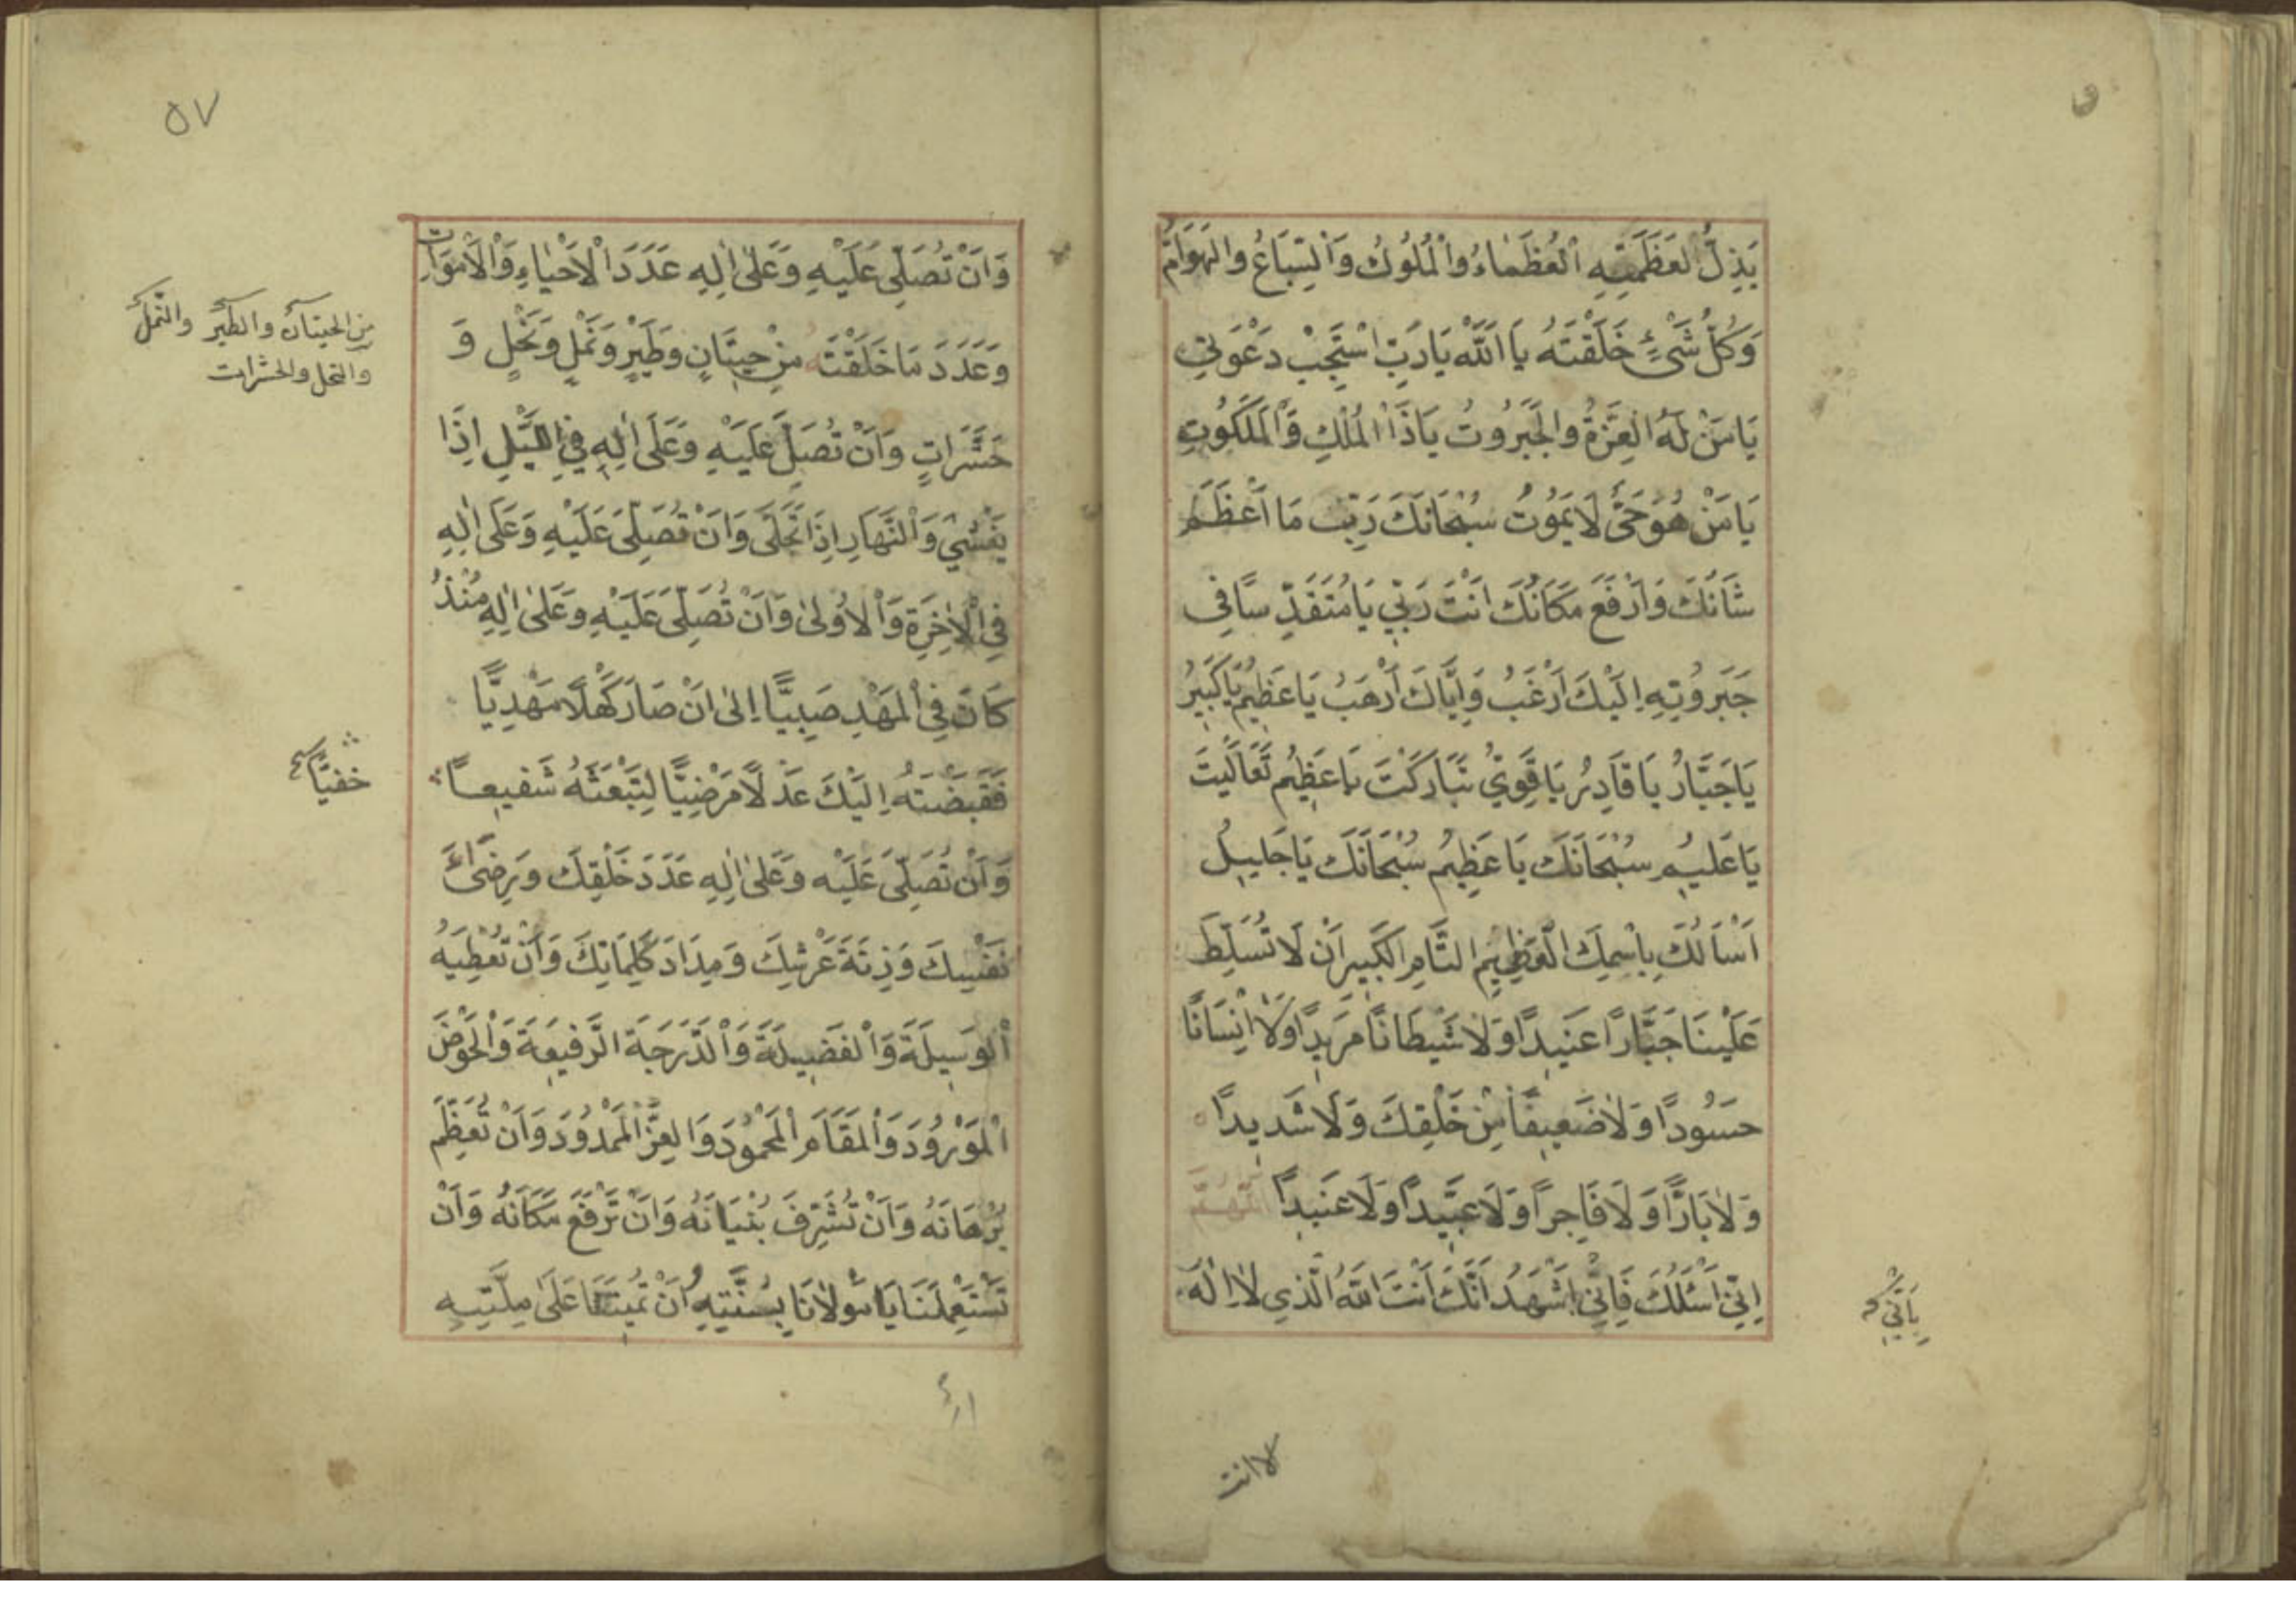 يَذِلُّ لِعَظَمَتِهِ الْعُظَمَاءُ وَالْمُلُوكُ وَالسِّبَاعُ وَالْهَوَامُّ
وَكُلُّ شَيْءٍ خَلَقْتَهُ يَا اَللّٰهُ يَا رَبِّ اسْتَجِبْ دَعْوَتِي
يَا مَنْ لَهُ الْعِزَّةُ وَالْجَبَرُوتُ يَا ذَا الْمُلْكِ وَالْمَلَكُوتِ
يَا مَنْ هُوَ حَيٌّ لَا يَمُوتُ سُبْحَانَكَ رَبِّ مَا اَعْظَمَ
شَانَكَ وَاَرْفَعَ مَكَانَكَ اَنْتَ رَبِّي يَا مُتَقَدِّسًا فِي
جَبَرُوتِهِ اِلَيْكَ اَرْغَبُ وَاِيَّاكَ اَرْهَبُ يَا عَظِيمُ يَا كَبِيرُ
يَا جَبَّارُ يَا قَادِرُ يَا قَوِيُّ تَبَارَكْتَ يَا عَظِيمُ تَعَالَيْتَ
يَا عَلِيمُ سُبْحَانَكَ يَا عَظِيمُ سُبْحَانَكَ يَا جَلِيلُ
اَسْاَلُكَ بِاسْمِكَ الْعَظِيمِ التَّامِّ الْكَبِيرِ اَنْ لَا تُسَلِّطَ
عَلَيْنَا جَبَّارًا عَنِيدًا وَلَا شَيْطَانًا مَرِيدًا وَلَا اِنْسَانًا
حَسُودًا وَلَا ضَعِيفًا مِنْ خَلْقِكَ وَلَا شَدِيدًا
وَلَا بَارًّا وَلَا فَاجِرًا وَلَا عَبِيدًا وَلَا عَنِيدًا اللّٰهُمَّ
اِنِّي اَسْئَلُكَ فَاِنِّي اَشْهَدُ اَنَّكَ اَنْتَ اللّٰهُ الَّذِي لَا اِلٰهَ
بِاَنِّي
الا انت
٥٧
وَاَنْ تُصَلِّيَ عَلَيْهِ وَعَلٰى اٰلِهِ عَدَدَ الْاَحْيَاءِ وَالْاَمْوَاتِ
وَعَدَدَ مَا خَلَقْتَهُ مِنْ حِيتَانٍ وَطَيْرٍ وَنَمْلٍ وَنَحْلٍ وَ
حَشَرَاتٍ وَاَنْ تُصَلِّ عَلَيْهِ وَعَلَى اٰلِهِ فِي اللَّيْلِ اِذَا
يَغْشٰى وَالنَّهَارِ اِذَا تَجَلَّى وَاَنْ تُصَلِّيَ عَلَيْهِ وَعَلَى اٰلِهِ
فِي الْاٰخِرَةِ وَالْاُولٰى وَاَنْ تُصَلِّيَ عَلَيْهِ وَعَلٰى اٰلِهِ مُنْذُ
كَانَ فِي الْمَهْدِ صَبِيًّا اِلٰى اَنْ صَارَ كَهْلًا مَهْدِيًّا
فَقَبَضْتَهُ اِلَيْكَ عَدْلًا مَرْضِيًّا لِتَبْعَثَهُ شَفِيعًا
وَاَنْ تُصَلِّيَ عَلَيْهِ وَعَلٰى اٰلِهِ عَدَدَ خَلْقِكَ وَرِضَاءَ
نَفْسِكَ وَزِنَةَ عَرْشِكَ وَمِدَادَ كَلِمَاتِكَ وَاَنْ تُعْطِيَهُ
الْوَسِيلَةَ وَالْفَضِيلَةَ وَالدَّرَجَةَ الرَّفِيعَةَ وَالْحَوْضَ
الْمَوْرُودَ وَالْمَقَامَ الْمَحْمُودَ وَالْعِزَّ الْمَمْدُودَ وَاَنْ تُعَظِّمَ
بُرْهَانَهُ وَاَنْ تُشَرِّفَ بُنْيَانَهُ وَاَنْ تَرْفَعَ مَكَانَهُ وَاَنْ
تَسْتَعْمِلَنَا يَا مَوْلَانَا بِسُنَّتِهِ وَاَنْ تُمِيتَنَا عَلَى مِلَّتِهِ
من الحيتان والطير والنمل
والنحل والحشرات
حفيًّا